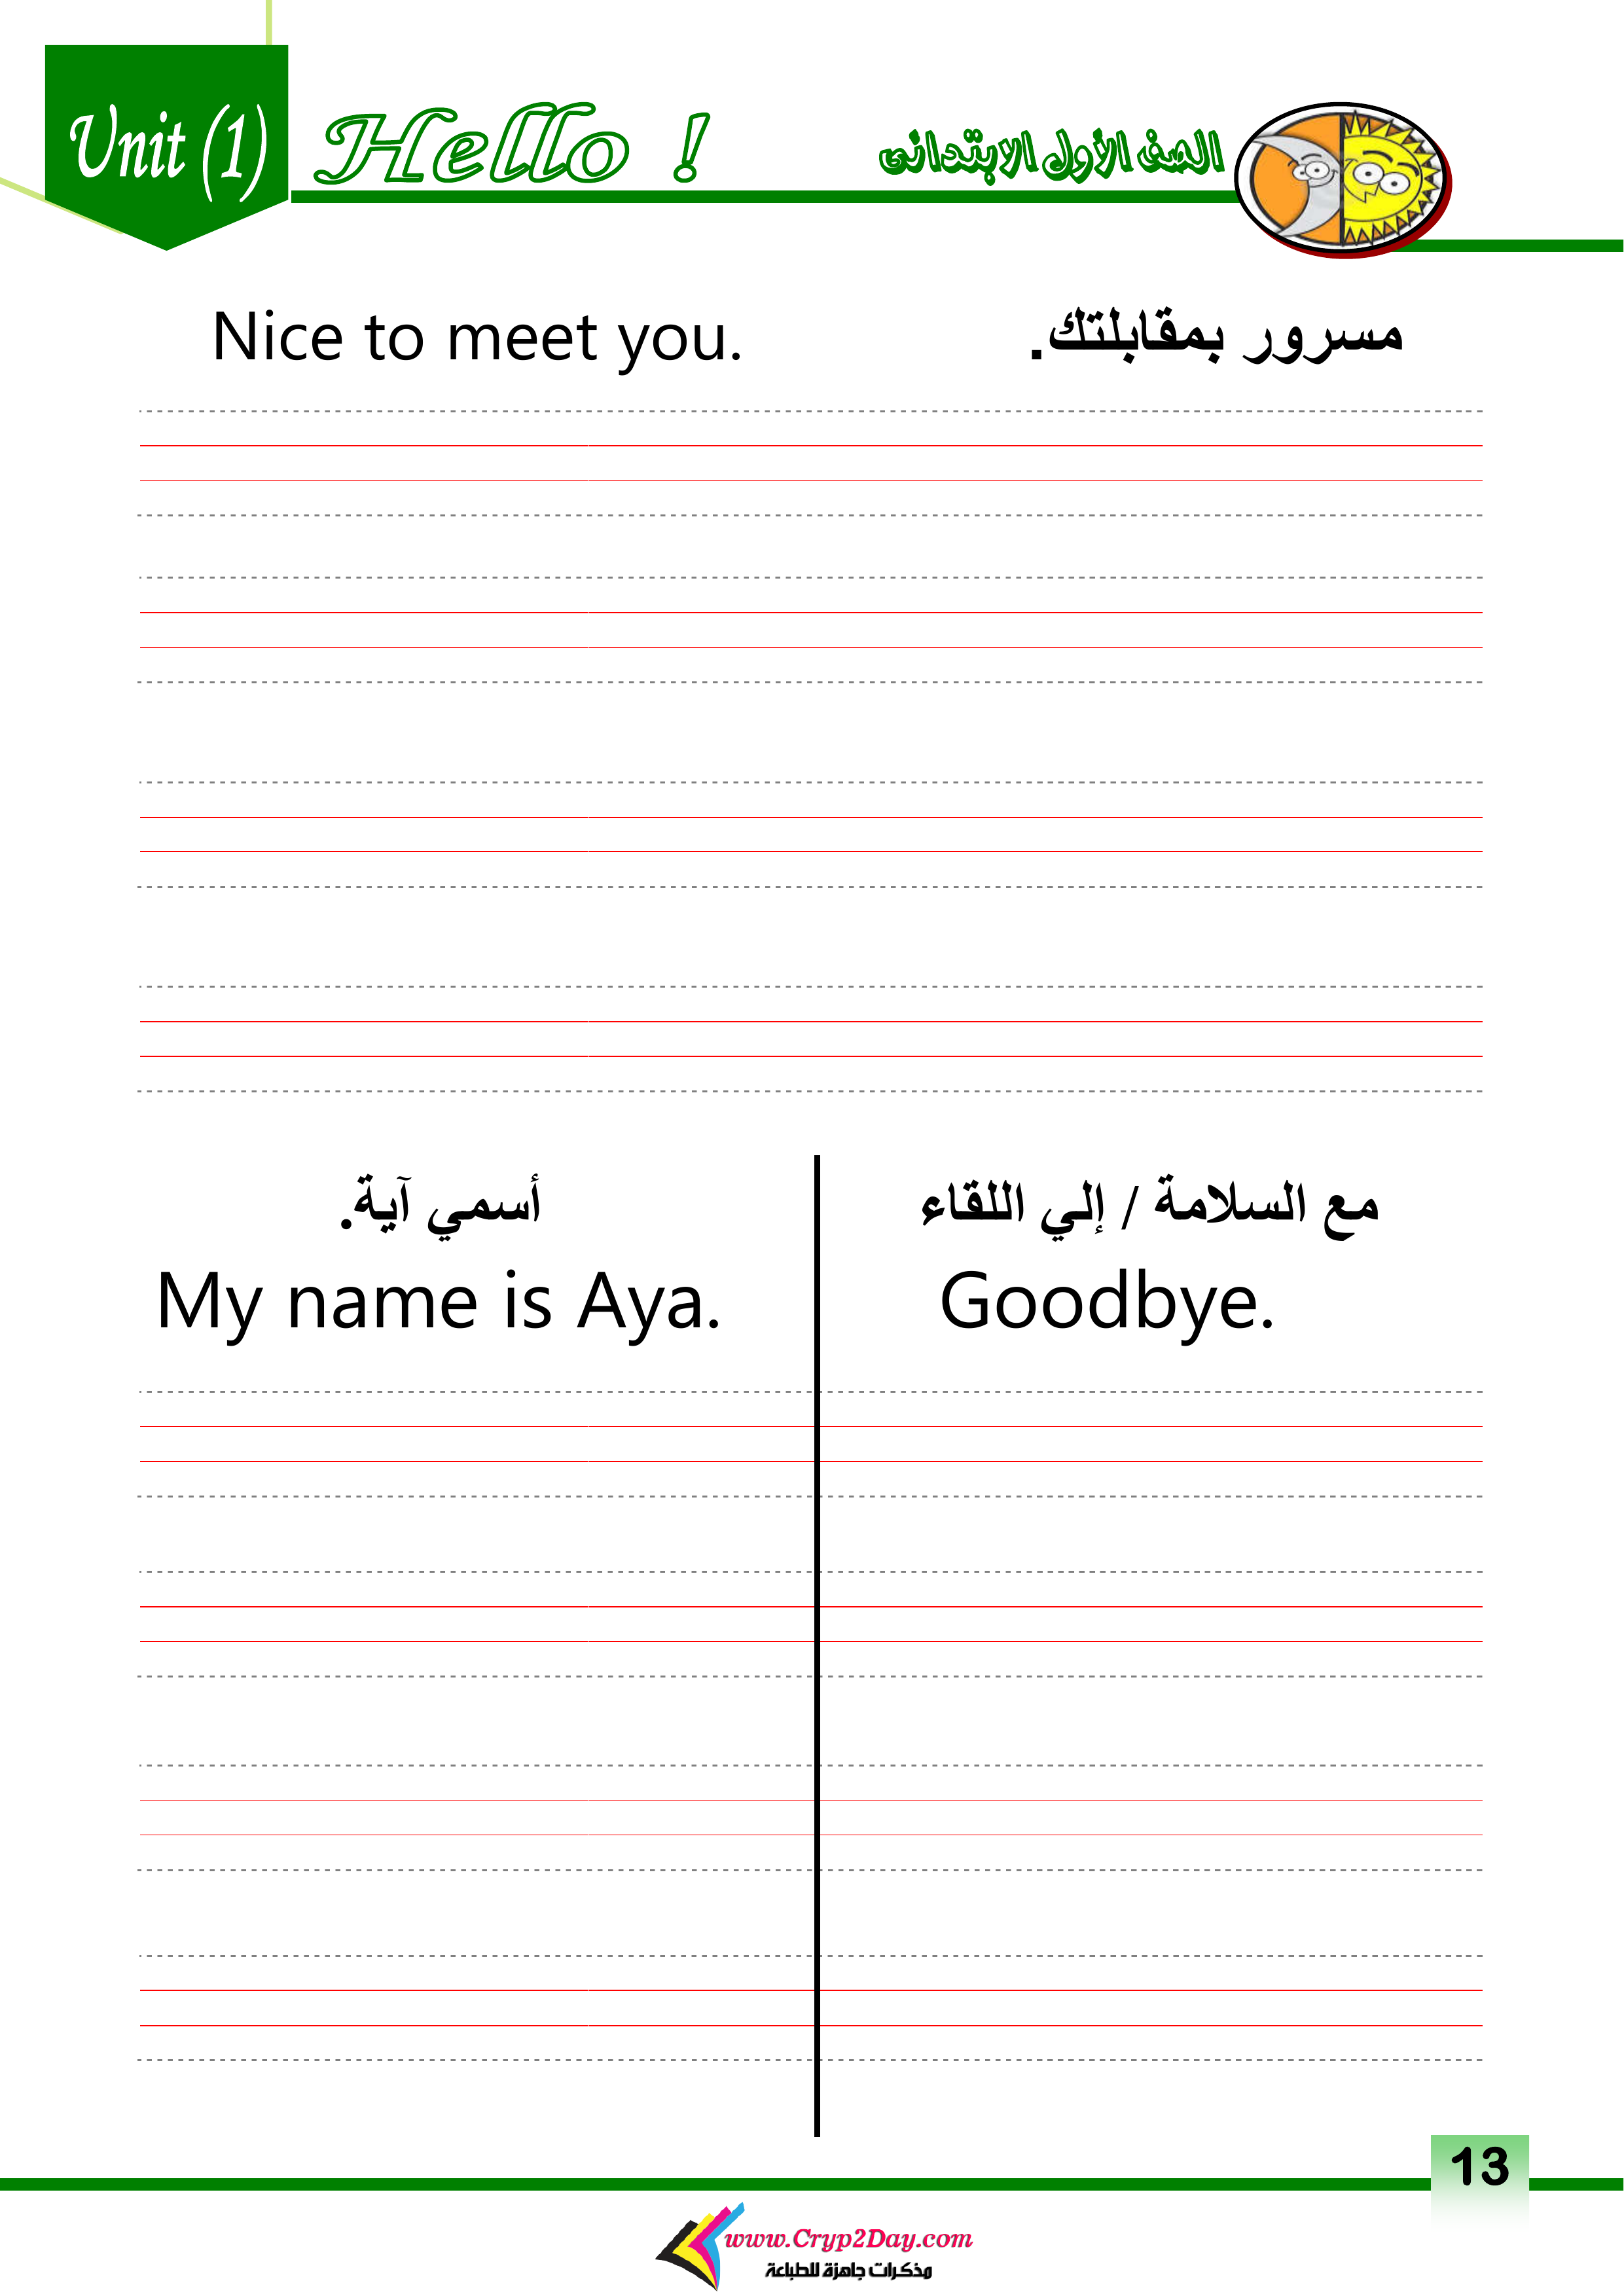 Unit (1) Hello ! الصف الأول الابتدائى
Nice to meet you. مسرور بمقابلتك.
أسمي آية.
My name is Aya.
مع السلامة / إلي اللقاء
Goodbye.
13
www.Cryp2Day.com
مذكرات جاهزة للطباعة